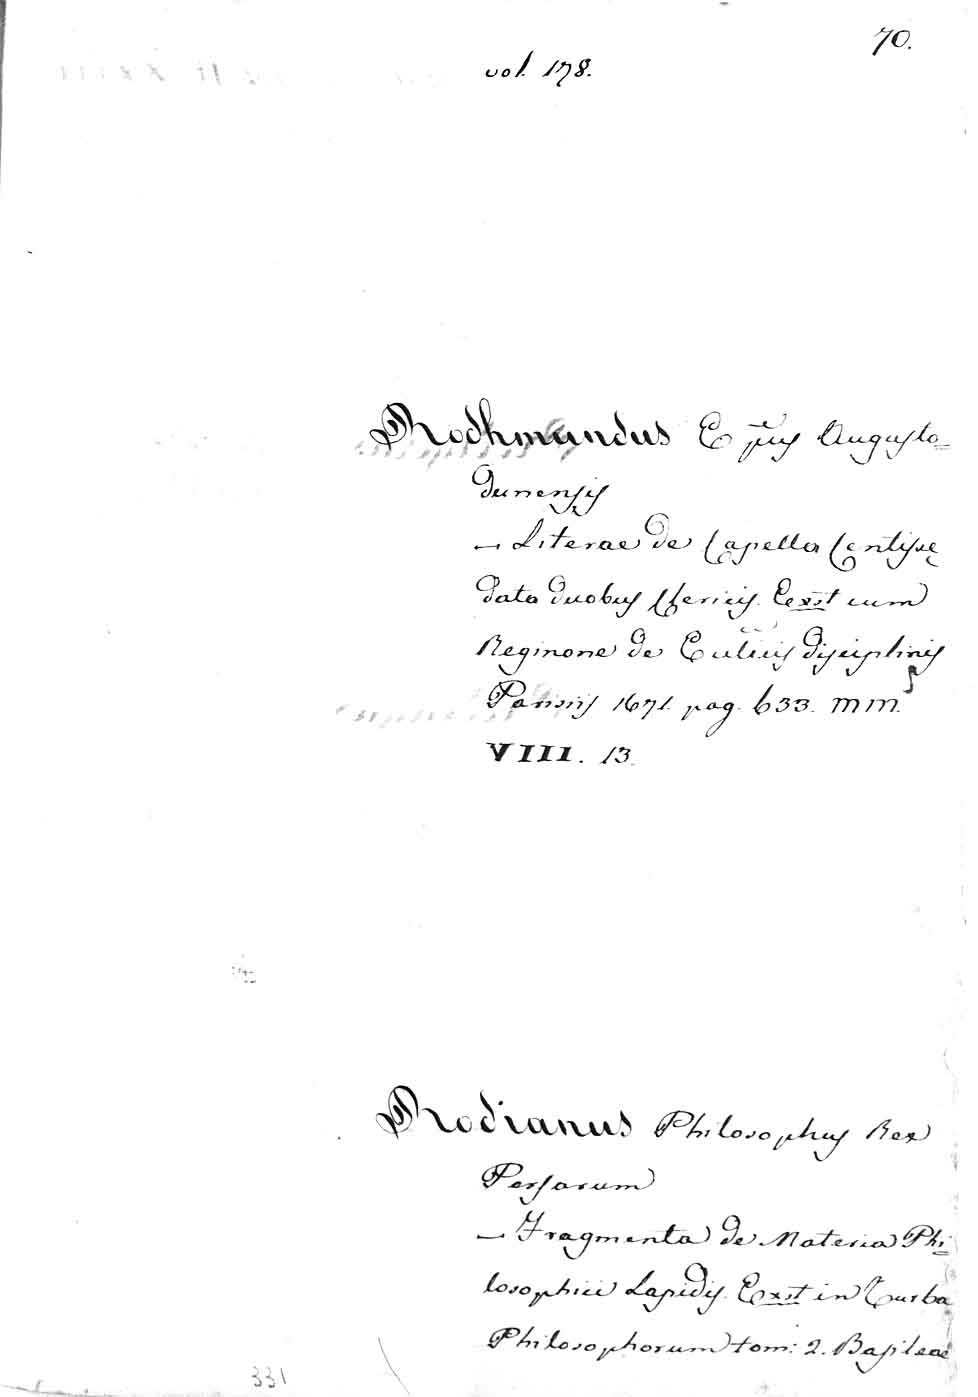 70.
vol. 178.
Rodhmundus Epũs Augusto=
dunensis
— Literae de Capella
data duobus Clericis. Exst cum
Reginone de Ecclĩcis Disciplinis
Parisiis 1671. pag. 633. mm.
VIII. 13.
Rodianus Philosophus Rex
Persarum
— Fragmenta de Materia Phi=
losophici Lapidis. Exst in Turba
Philosophorum tom: 2. Basileae
331